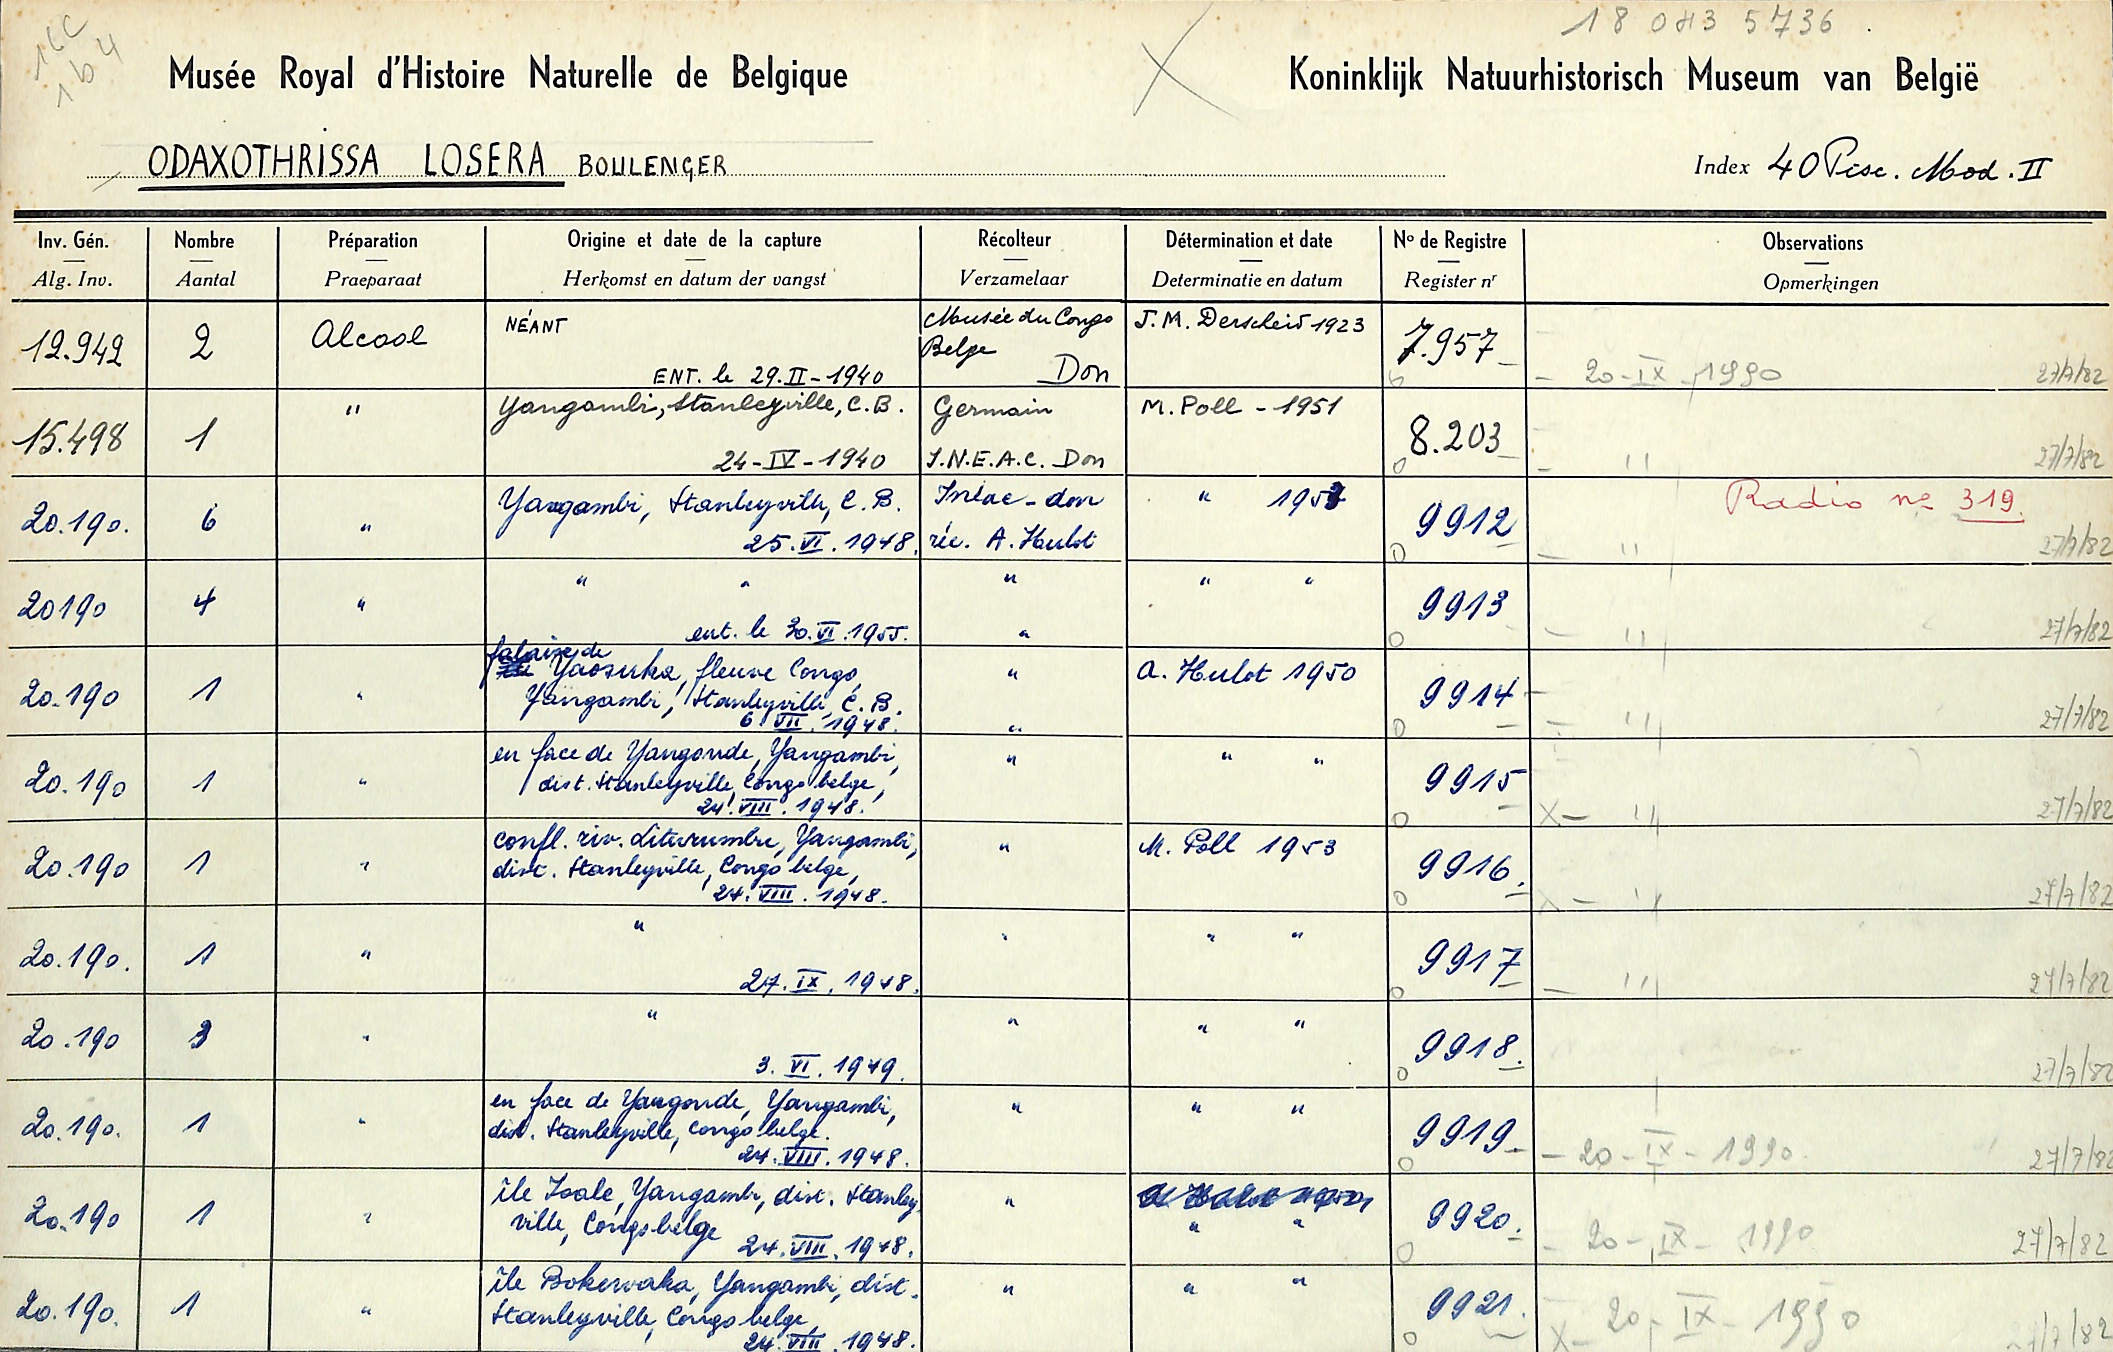 18 043 5736
Musée Royal d'Histoire Naturelle de Belgique
Koninklijk Natuurhistorisch Museum van België
ODAXOTHRISSA LOSERA BOULENGER
Index 40 Pisc. Mod. II
Inv. Gén. Nombre Préparation Origine et date de la capture Récolteur Détermination et date No de Registre Observations
Alg. Inv. Aantal Praeparaat Herkomst en datum der vangst Verzamelaar Determinatie en datum Register nr Opmerkingen
12.942 2 Alcool NÉANT Musée du Congo J.M. Derscheid 1923 7.957
Belge
ENT. le 29.II-1940 Don - 20-IX-1990 27/7/82
15.498 1 " Yangambi, Stanleyville, C.B. Germain M. Poll - 1951 8.203
24-IV-1940 I.N.E.A.C. Don - " 27/7/82
20.190. 6 " Yangambi, Stanleyville, C.B. Inéac - don " 1953 9912 Radio no 319.
25.VI.1948. réc. A. Hulot - " 27/7/82
20190 4 " " " " " " 9913
ent. le 30.VI.1955. " - " 27/7/82
falaise de
20.190 1 " Yaosuka, fleuve Congo, " A. Hulot 1950 9914
Yangambi, Stanleyville, C.B.
6.VII.1948. " - " 27/7/82
20.190 1 " en face de Yangonde, Yangambi, " " " 9915
dist. Stanleyville, Congo belge,
24.VIII.1948. X - " 27/7/82
20.190 1 " confl. riv. Yangambi, " M. Poll 1953 9916.
dist. Stanleyville, Congo belge,
24.VIII.1948. X - " 27/7/82
20.190. 1 " " " " " 9917
27.IX.1948. - " 27/7/82
20.190 3 " " " " " 9918.
3.VI.1949. 27/7/82
20.190. 1 " en face de Yangonde, Yangambi, " " " 9919
dist. Stanleyville, Congo belge.
24.VIII.1948. - 20-IX-1990. 27/7/82
20.190 1 " île Isale, Yangambi, dist. Stanley- " 9920.
ville, Congo belge " "
24.VIII.1948. - 20-IX-1990 27/7/82
20.190. 1 " île Yangambi, dist. " " " 9921.
Stanleyville, Congo belge
24.VIII.1948. X - 20-IX-1990 27/7/82